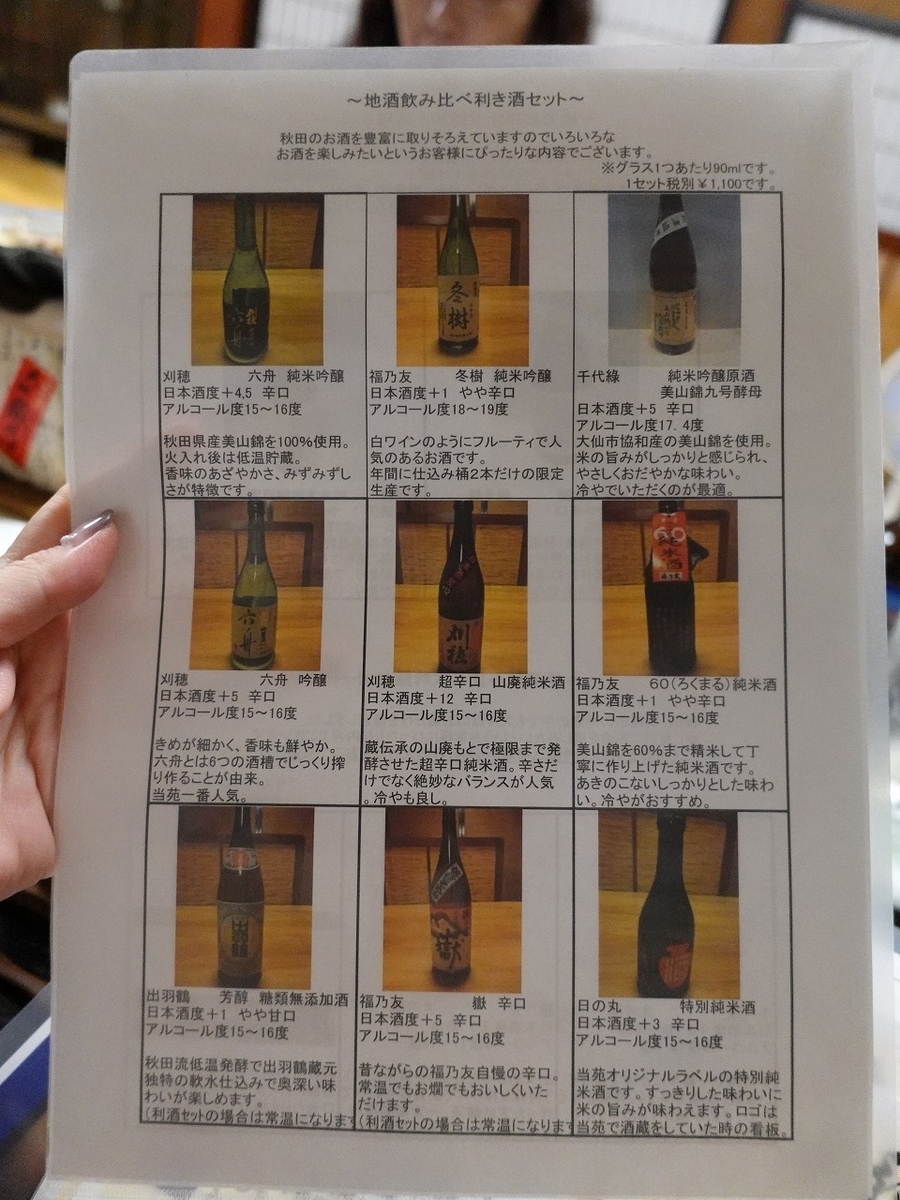 ～地酒飲み比べ利き酒セット～
秋田のお酒を豊富に取りそろえていますのでいろいろな
お酒を楽しみたいというお客様にぴったりな内容でございます。
※グラス1つあたり90mlです。
1セット税別￥1,100です。
六舟
刈穂　六舟 純米吟醸
日本酒度＋4,5 辛口
アルコール度15～16度
秋田県産美山錦を100％使用。
火入れ後は低温貯蔵。
香味のあざやかさ、みずみずし
さが特徴です。
冬樹
福乃友　冬樹 純米吟醸
日本酒度＋1 やや辛口
アルコール度18～19度
白ワインのようにフルーティで人
気のあるお酒です。
年間に仕込み桶2本だけの限定
生産です。
千代緑　純米吟醸原酒
美山錦九号酵母
日本酒度＋5 辛口
アルコール度17. 4度
大仙市協和産の美山錦を使用。
米の旨みがしっかりと感じられ、
やさしくおだやかな味わい。
冷やでいただくのが最適。
六舟
刈穂　六舟 吟醸
日本酒度＋5 辛口
アルコール度15～16度
きめが細かく、香味も鮮やか。
六舟とは6つの酒槽でじっくり搾
り作ることが由来。
当苑一番人気。
刈穂
刈穂　超辛口 山廃純米酒
日本酒度＋12 辛口
アルコール度15～16度
蔵伝承の山廃もとで極限まで発
酵させた超辛口純米酒。辛さだ
けでなく絶妙なバランスが人気
。冷やも良し。
60
純米酒
福乃友　60（ろくまる）純米酒
日本酒度＋1 やや辛口
アルコール度15～16度
美山錦を60％まで精米して丁
寧に作り上げた純米酒です。
あきのこないしっかりとした味わ
い。冷やがおすすめ。
出羽鶴　芳醇 糖類無添加酒
日本酒度＋1 やや甘口
アルコール度15～16度
秋田流低温発酵で出羽鶴蔵元
独特の軟水仕込みで奥深い味
わいが楽しめます。
（利酒セットの場合は常温になります
福乃友　嶽 辛口
日本酒度＋5 辛口
アルコール度15～16度
昔ながらの福乃友自慢の辛口。
常温でもお燗でもおいしくいた
だけます。
（利酒セットの場合は常温になります
日の丸　特別純米酒
日本酒度＋3 辛口
アルコール度15～16度
当苑オリジナルラベルの特別純
米酒です。すっきりした味わいに
米の旨みが味わえます。ロゴは
当苑で酒蔵をしていた時の看板。